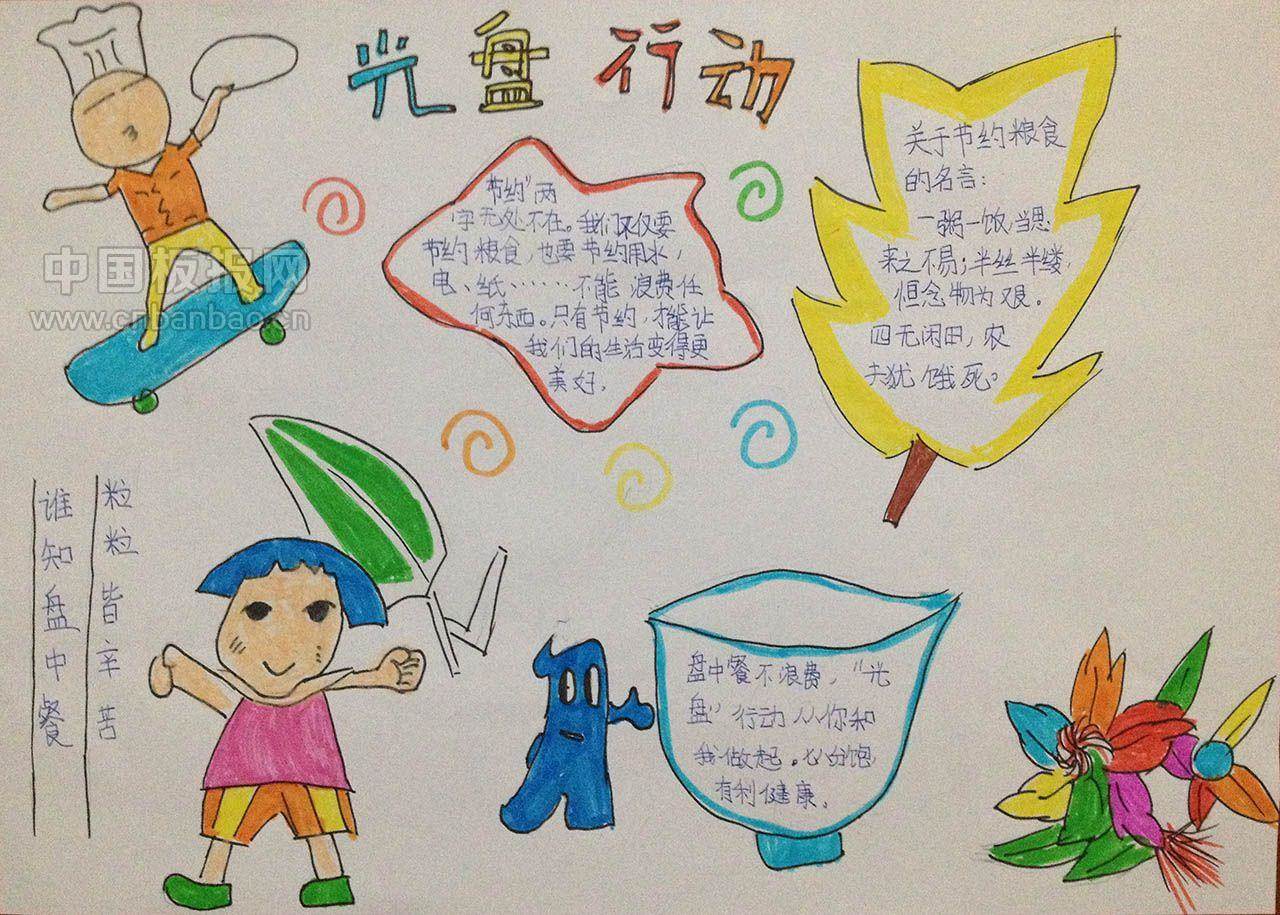 光盘行动
节约"两
字无处不在。我们不仅要
节约粮食,也要节约用水,
电、纸……不能浪费任
何东西。只有节约,才能让
我们的生活变得更
美好.
关于节约粮食
的名言:
一粥一饮,当思
来之不易;半丝半缕,
但念物为艰。
四无闲田,农
夫犹饿死。
中国板报网
www.cnbanbao.cn
谁知盘中餐
粒粒皆辛苦
盘中餐不浪费,"光
盘"行动从你和
我做起。八分饱,
有利健康.